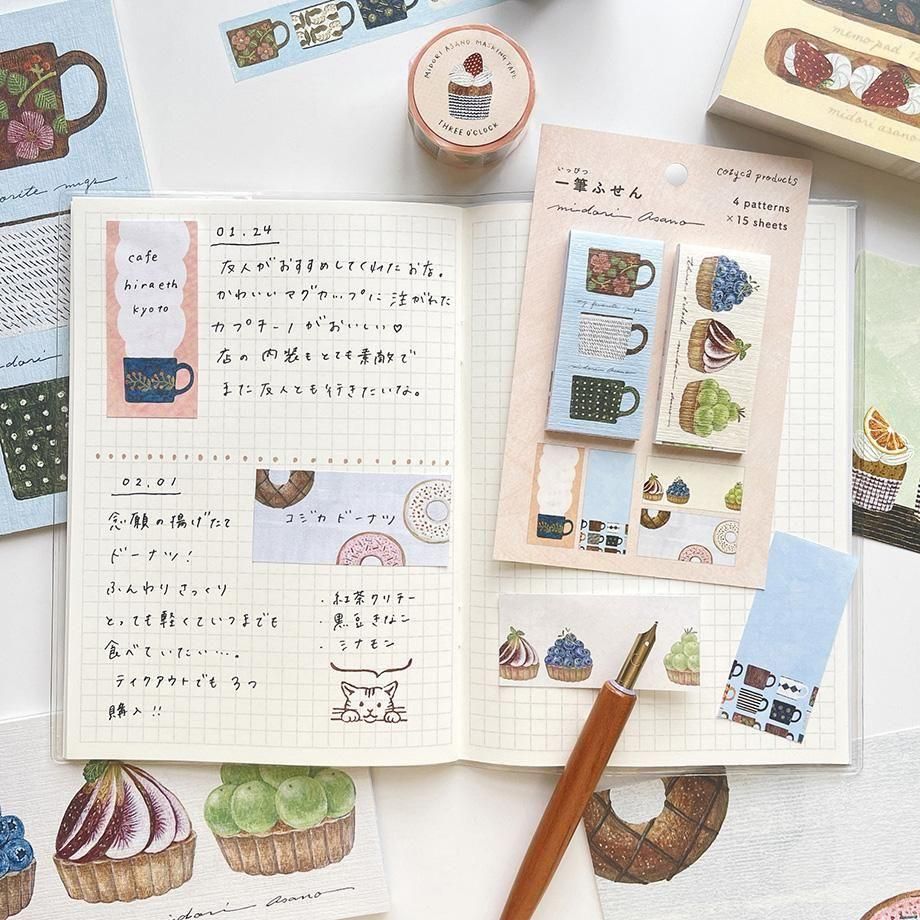 MIDORI ASANO MASKING TAPE
THREE O'CLOCK
memo pad
midori asano
いっぴつ
一筆ふせん
midori asano
cozyca products
4 patterns
×15 sheets
my favorite mugs
midori asano
midori asano
cafe
hiraeth
kyoto
01.24
友人がおすすめしてくれたお店。
かわいいマグカップに注がれた
カプチーノがおいしい♡
店の内装もとても素敵で
また友人とも行きたいな。
02.01
念願の揚げたて
ドーナツ!
ふんわりさっくり
とっても軽くていつまでも
食べていたい…。
テイクアウトでも3つ
購入!!
コジカドーナツ
・紅茶クリチー
・黒豆きなこ
・シナモン
orite mugs
midori
midori asano